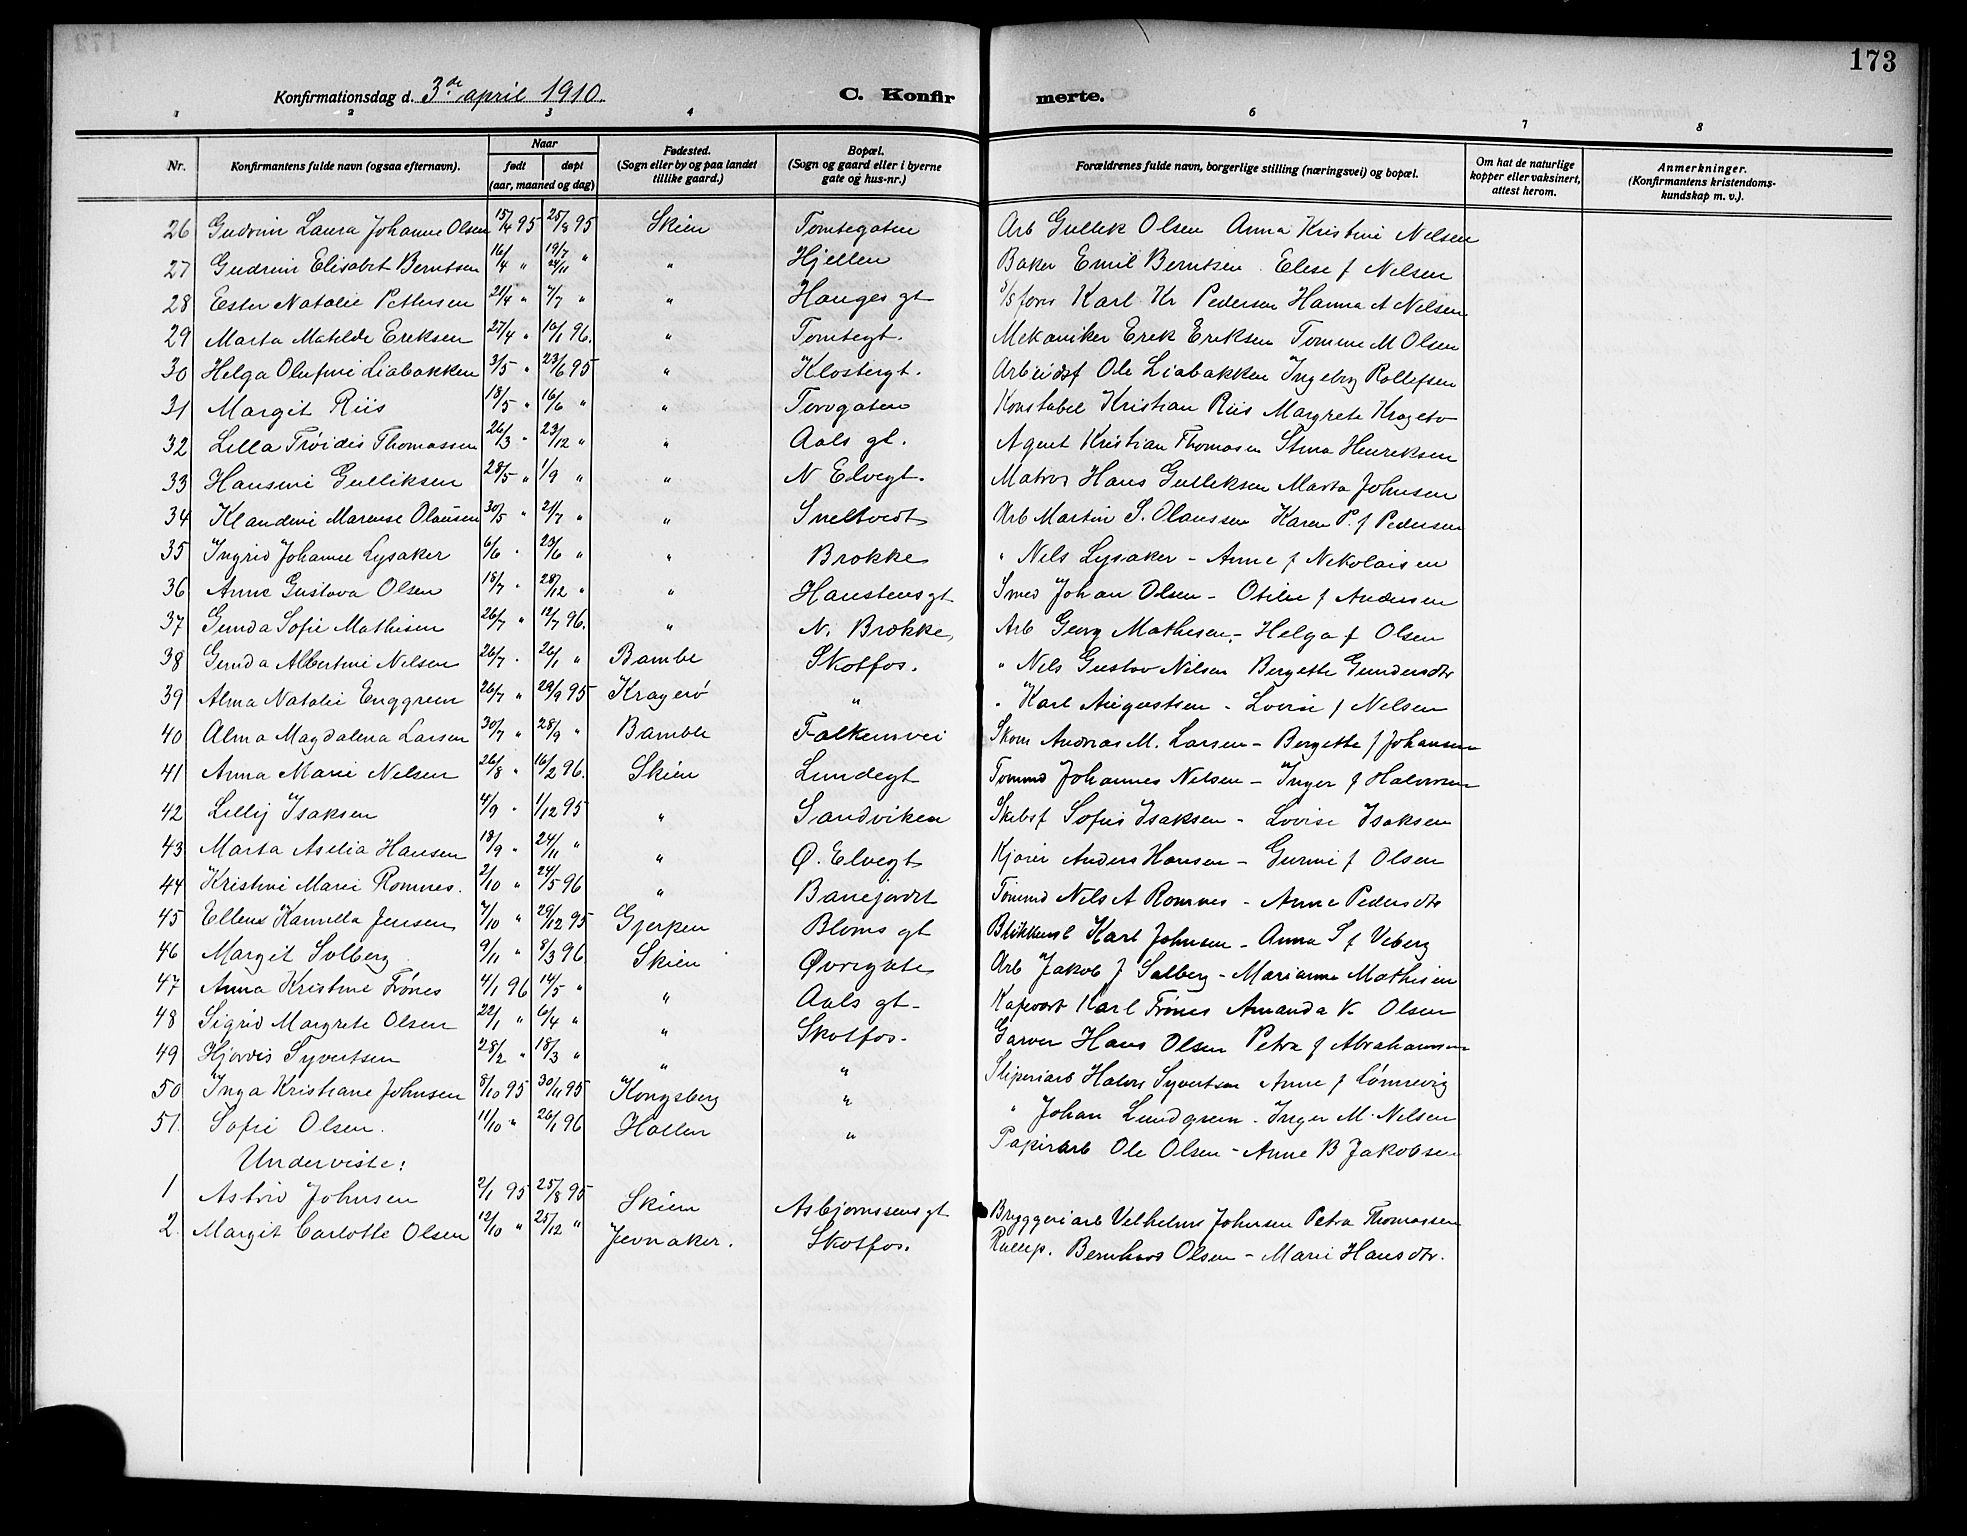 173
Konfirmationsdag d. 3de april 1910.
C. Konfirmerte.
1 2 3 4 6 7 8
Nr. Konfirmantens fulde navn (ogsaa efternavn). Naar født døpt (aar, maaned og dag) Fødested. (Sogn eller by og paa landet tillike gaard.) Bopæl. (Sogn og gaard eller i byerne gate og hus-nr.) Forældrenes fulde navn, borgerlige stilling (næringsvei) og bopæl. Om hat de naturlige kopper eller vaksinert, attest herom. Anmerkninger. (Konfirmantens kristendoms-kundskap m. v.).
26 Gudrun Laura Johanne Olsen 15/4 95 25/8 95 Skien Tomtegaten Arb Gullik Olsen Anna Kristine Nelsen
27 Gudrun Elisabet Berntsen 16/4 " 19/7 24/11 " " Hjellen Baker Emil Berntsen Elise f Nelsen
28 Ester Natalie Pettersen 21/4 " 7/7 " " Hauges gt S/S fører Karl Kr Pedersen Hanna A Nelsen
29 Marta Matilde Eriksen 27/4 " 10/1 96. " Tomtegt. Mekaniker Erik Eriksen Tomine M Olsen
30 Helga Olufine Liabakken 3/5 " 23/6 95 " Klostergt. Arbeidsf Ole Liabakken Ingeborg Rollefsen
31 Margit Riis 18/5 " 16/6 " " Torvgaten Konstabel Kristian Riis Margrete
32 Lilla Frøidis Thomassen 26/3 " 23/12 " " Aals gt. Agent Kristian Thomasen Stina Henriksen
33 Hansine Gulliksen 28/5 " 1/9 " " N Elvegt. Matros Hans Gulliksen Marta Johnsen
34 Klaudine Marense Olausen 30/5 " 21/7 " " Sneltvedt Arb Martin S. Olaussen Karen P. f Pedersen
35 Ingrid Johanne Lysaker 6/6 " 23/6 " " Brokke " Nels Lysaker - Anne f Nikolaisen
36 Anne Gustava Olsen 18/7 " 28/12 " " Hanstensgt Smed Johan Olsen - Otilie f Andersen
37 Gunda Sofie Mathisen 26/7 " 12/7 96. " N. Brokke, Arb Georg Mathisen, - Helga f Olsen
38 Gunda Albertine Nelsen 26/7 " 26/1 " Bamble Skotfos. " Nels Gustav Nilsen Bergette Gundersdtr
39 Alma Natalie Enggren 26/7 " 29/9 95 Kragerø " " Karl Augustsen - Lovise f Nelsen
40 Alma Magdalena Larsen 30/7 " 28/9 " Bamble Falkumsvei Skom Andreas M. Larsen - Bergette f Johansen
41 Anna Marie Nelsen 26/8 " 16/2 96. Skien Lundegt Tømmd Johannes Nelsen - Inger f Halvorsen
42 Lillij Isaksen 4/9 " 1/12 95 " Sandviken Skibsf Sofus Isaksen - Lovise Isaksen
43 Marta Aselia Hansen 18/9 " 24/11 " " Ø. Elvegt Kjører Anders Hansen - Gurine f Olsen
44 Kristine Marie Romnes. 2/10 " 24/5 96 " Banejordet Tømmd Nels A Romnes - Anne Pedersdtr
45 Ellen Kamilla Jensen 7/10 " 29/12 95 Gjerpen Bloms gt Blikkensl Karl Johnsen - Anna S f Veberg
46 Margit Solberg 9/11 " 8/3 96 Skien Øvregate Arb Jakob J Solberg - Marianne Mathisen
47 Anna Kristine Frönes 4/1 96 14/5 " " Aals gt - Kafevert Karl Frönes Amanda K Olsen
48 Sigrid Margrete Olsen 22/1 " 6/4 " " Skotfos. Garver Hans Olsen Petra f Abrahamsen
49 Hjørdis Syvertsen 28/2 " 18/3 " " " Sliperiarb Halvor Syvertsen Anne f Lönnevig
50 Inga Kristiane Johnsen 8/10 95 30/11 95 Kongsberg " " Johan Lundgren - Inger M. Nelsen
51. Sofie Olsen. 11/10 " 26/1 96 Hollen " Papirarb Ole Olsen - Anne B Jakobsen
Underviste:
1 Astrid Johnsen 2/1 95 25/8 95 Skien Asbjørnssens gt Bryggeriarb Velhelm Johnsen Petra Thomassen
2. Margit Carlotte Olsen 12/10 " 25/12 " Jevnaker. Skotfos. Bernhard Olsen - Marie Hansdtr.